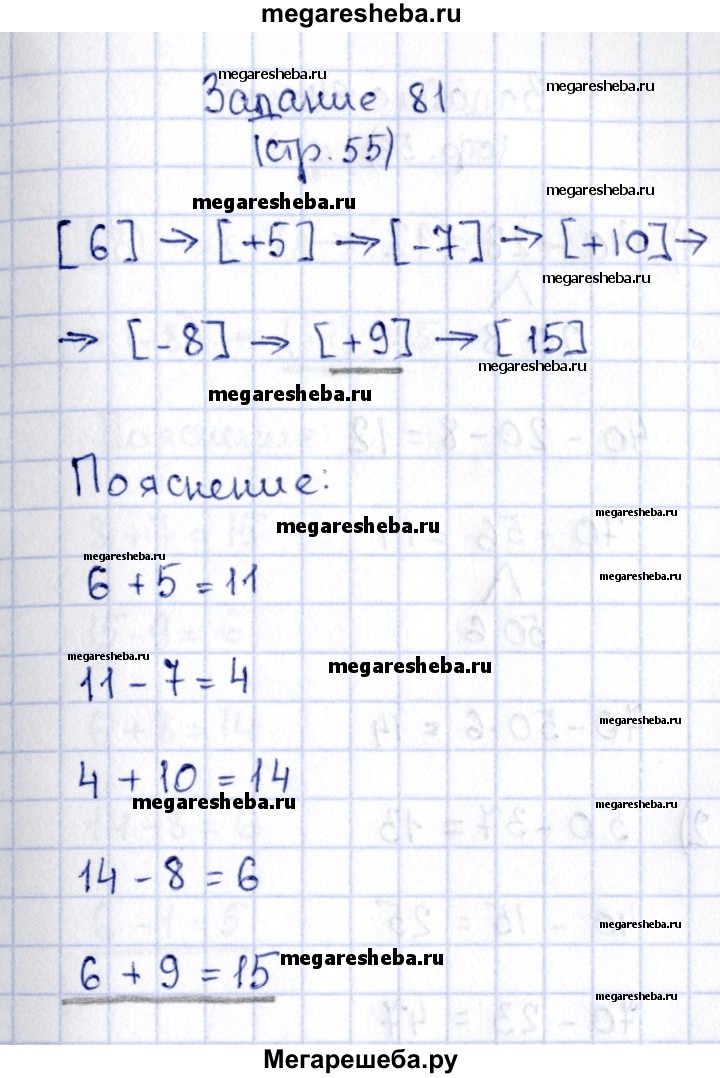 megaresheba.ru
megaresheba.ru
Задание 81
megaresheba.ru
(стр. 55)
megaresheba.ru
megaresheba.ru
[6] → [+5] → [-7] → [+10] →
megaresheba.ru
→ [-8] → [+9] → [15]
megaresheba.ru
megaresheba.ru
Пояснение:
megaresheba.ru
megaresheba.ru
megaresheba.ru
6 + 5 = 11
megaresheba.ru
megaresheba.ru
megaresheba.ru
11 - 7 = 4
megaresheba.ru
4 + 10 = 14
megaresheba.ru
megaresheba.ru
14 - 8 = 6
megaresheba.ru
6 + 9 = 15
megaresheba.ru
megaresheba.ru
Мегарешеба.ру